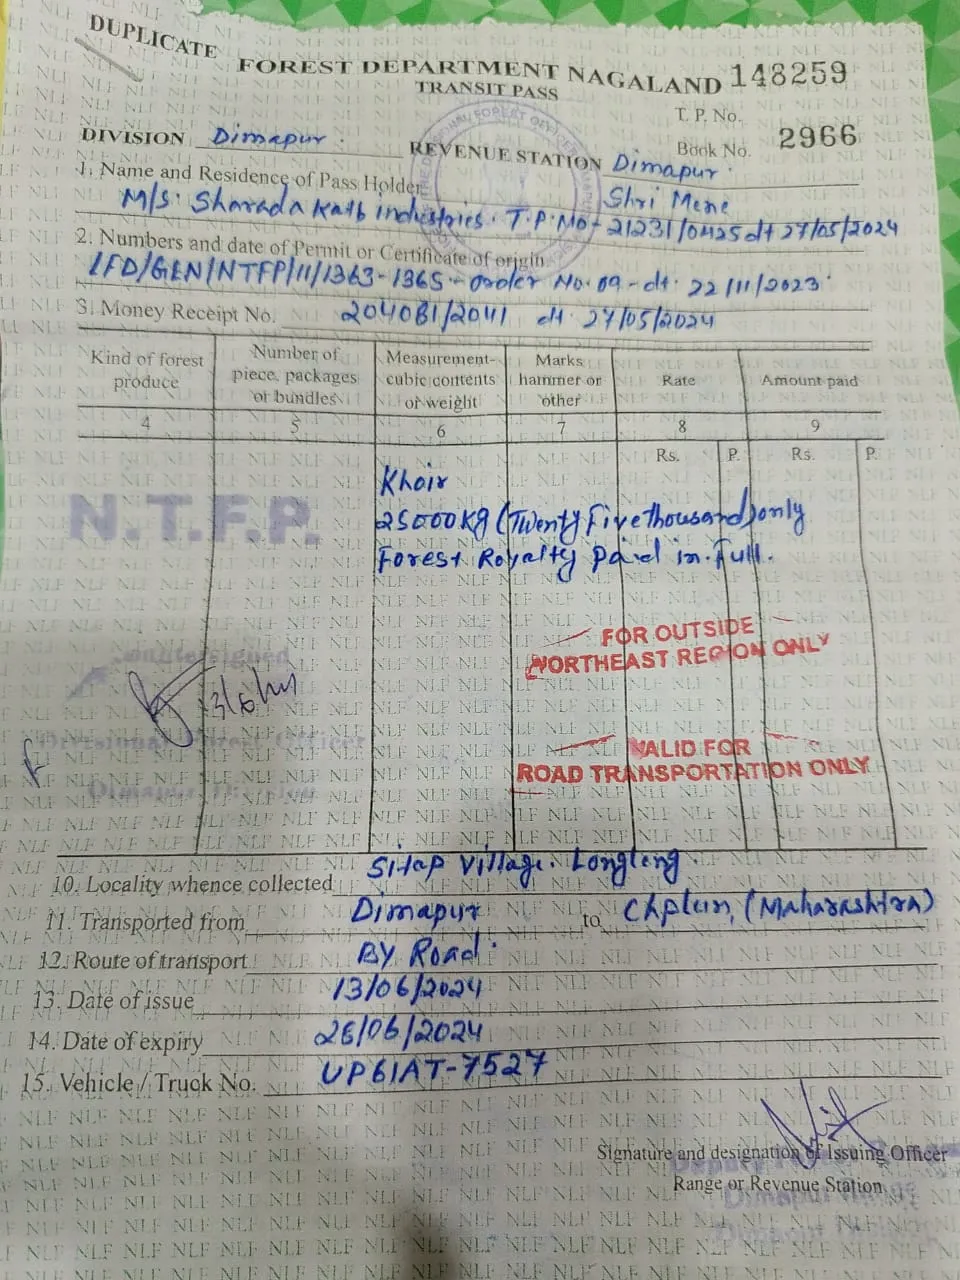 DUPLICATE
FOREST DEPARTMENT NAGALAND 148259
TRANSIT PASS
T. P. No.
DIVISION Dimapur. REVENUE STATION Dimapur. Book No. 2966
1. Name and Residence of Pass Holder Shri Mene
M/S. Sharada Kath industries. T.P. No - 21231/0425 dt 27/05/2024
2. Numbers and date of Permit or Certificate of origin
LFD/GEN/NTFP/11/1363-1365 - order No. 09 - dt. 22/11/2023.
3. Money Receipt No. 204081/2041 dt. 27/05/2024
Kind of forest produce
Number of piece, packages or bundles
Measurement- cubic contents or weight
Marks hammer or other
Rate
Amount paid
4 5 6 7 8 9
Rs. P. Rs. P.
N.T.F.P.
Khair
25000 KG (Twenty Five thousand) only
Forest Royalty Paid in. Full.
FOR OUTSIDE
NORTHEAST REGION ONLY
Countersigned
13/6/24
Divisional Forest Officer
Dimapur Division
VALID FOR
ROAD TRANSPORTATION ONLY
10. Locality whence collected Sitap Village. Longleng
11. Transported from Dimapur to Chplun, (Maharashtra)
12. Route of transport BY Road.
13. Date of issue 13/06/2024
14. Date of expiry 26/06/2024
15. Vehicle / Truck No. UP61AT-7527
Signature and designation of Issuing Officer
Range or Revenue Station